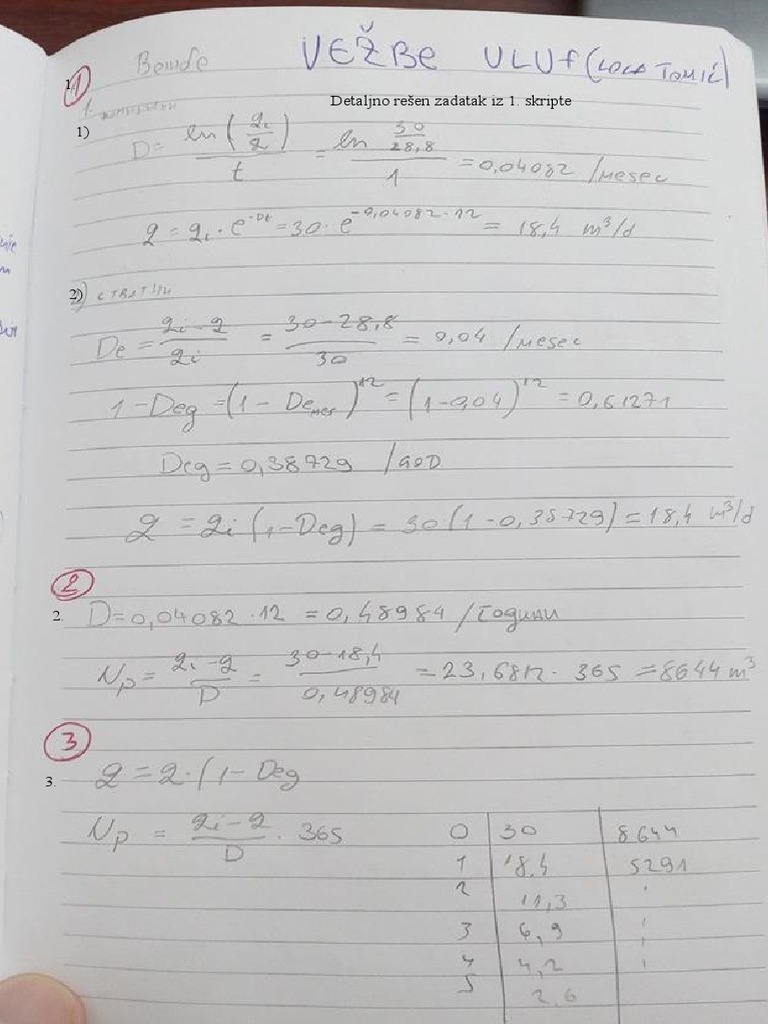 VEŽBE ULUF (LOLA TOMIĆ)
1
Detaljno rešen zadatak iz 1. skripte
1)
D = ln(qi/q) / t = ln(30/28,8) / 1 = 0,04082 /месец
q = qi · e^-Dt = 30 · e^-0,04082·12 = 18,4 m³/d
2) стварни
De = (qi - q) / qi = (30 - 28,8) / 30 = 0,04 /месец
1 - Deg = (1 - De mes)^12 = (1 - 0,04)^12 = 0,61271
Deg = 0,38729 /god
q = qi (1 - Deg) = 30 (1 - 0,38729) = 18,4 m³/d
2
2. D = 0,04082 · 12 = 0,48984 /годину
Np = (qi - q) / D = (30 - 18,4) / 0,48984 = 23,6812 · 365 = 8644 m³
3
3. q = q · (1 - Deg
Np = (qi - q) / D · 365
0 30 8644
1 18,4 5291
2 11,3
3 6,9
4 4,2
5 2,6